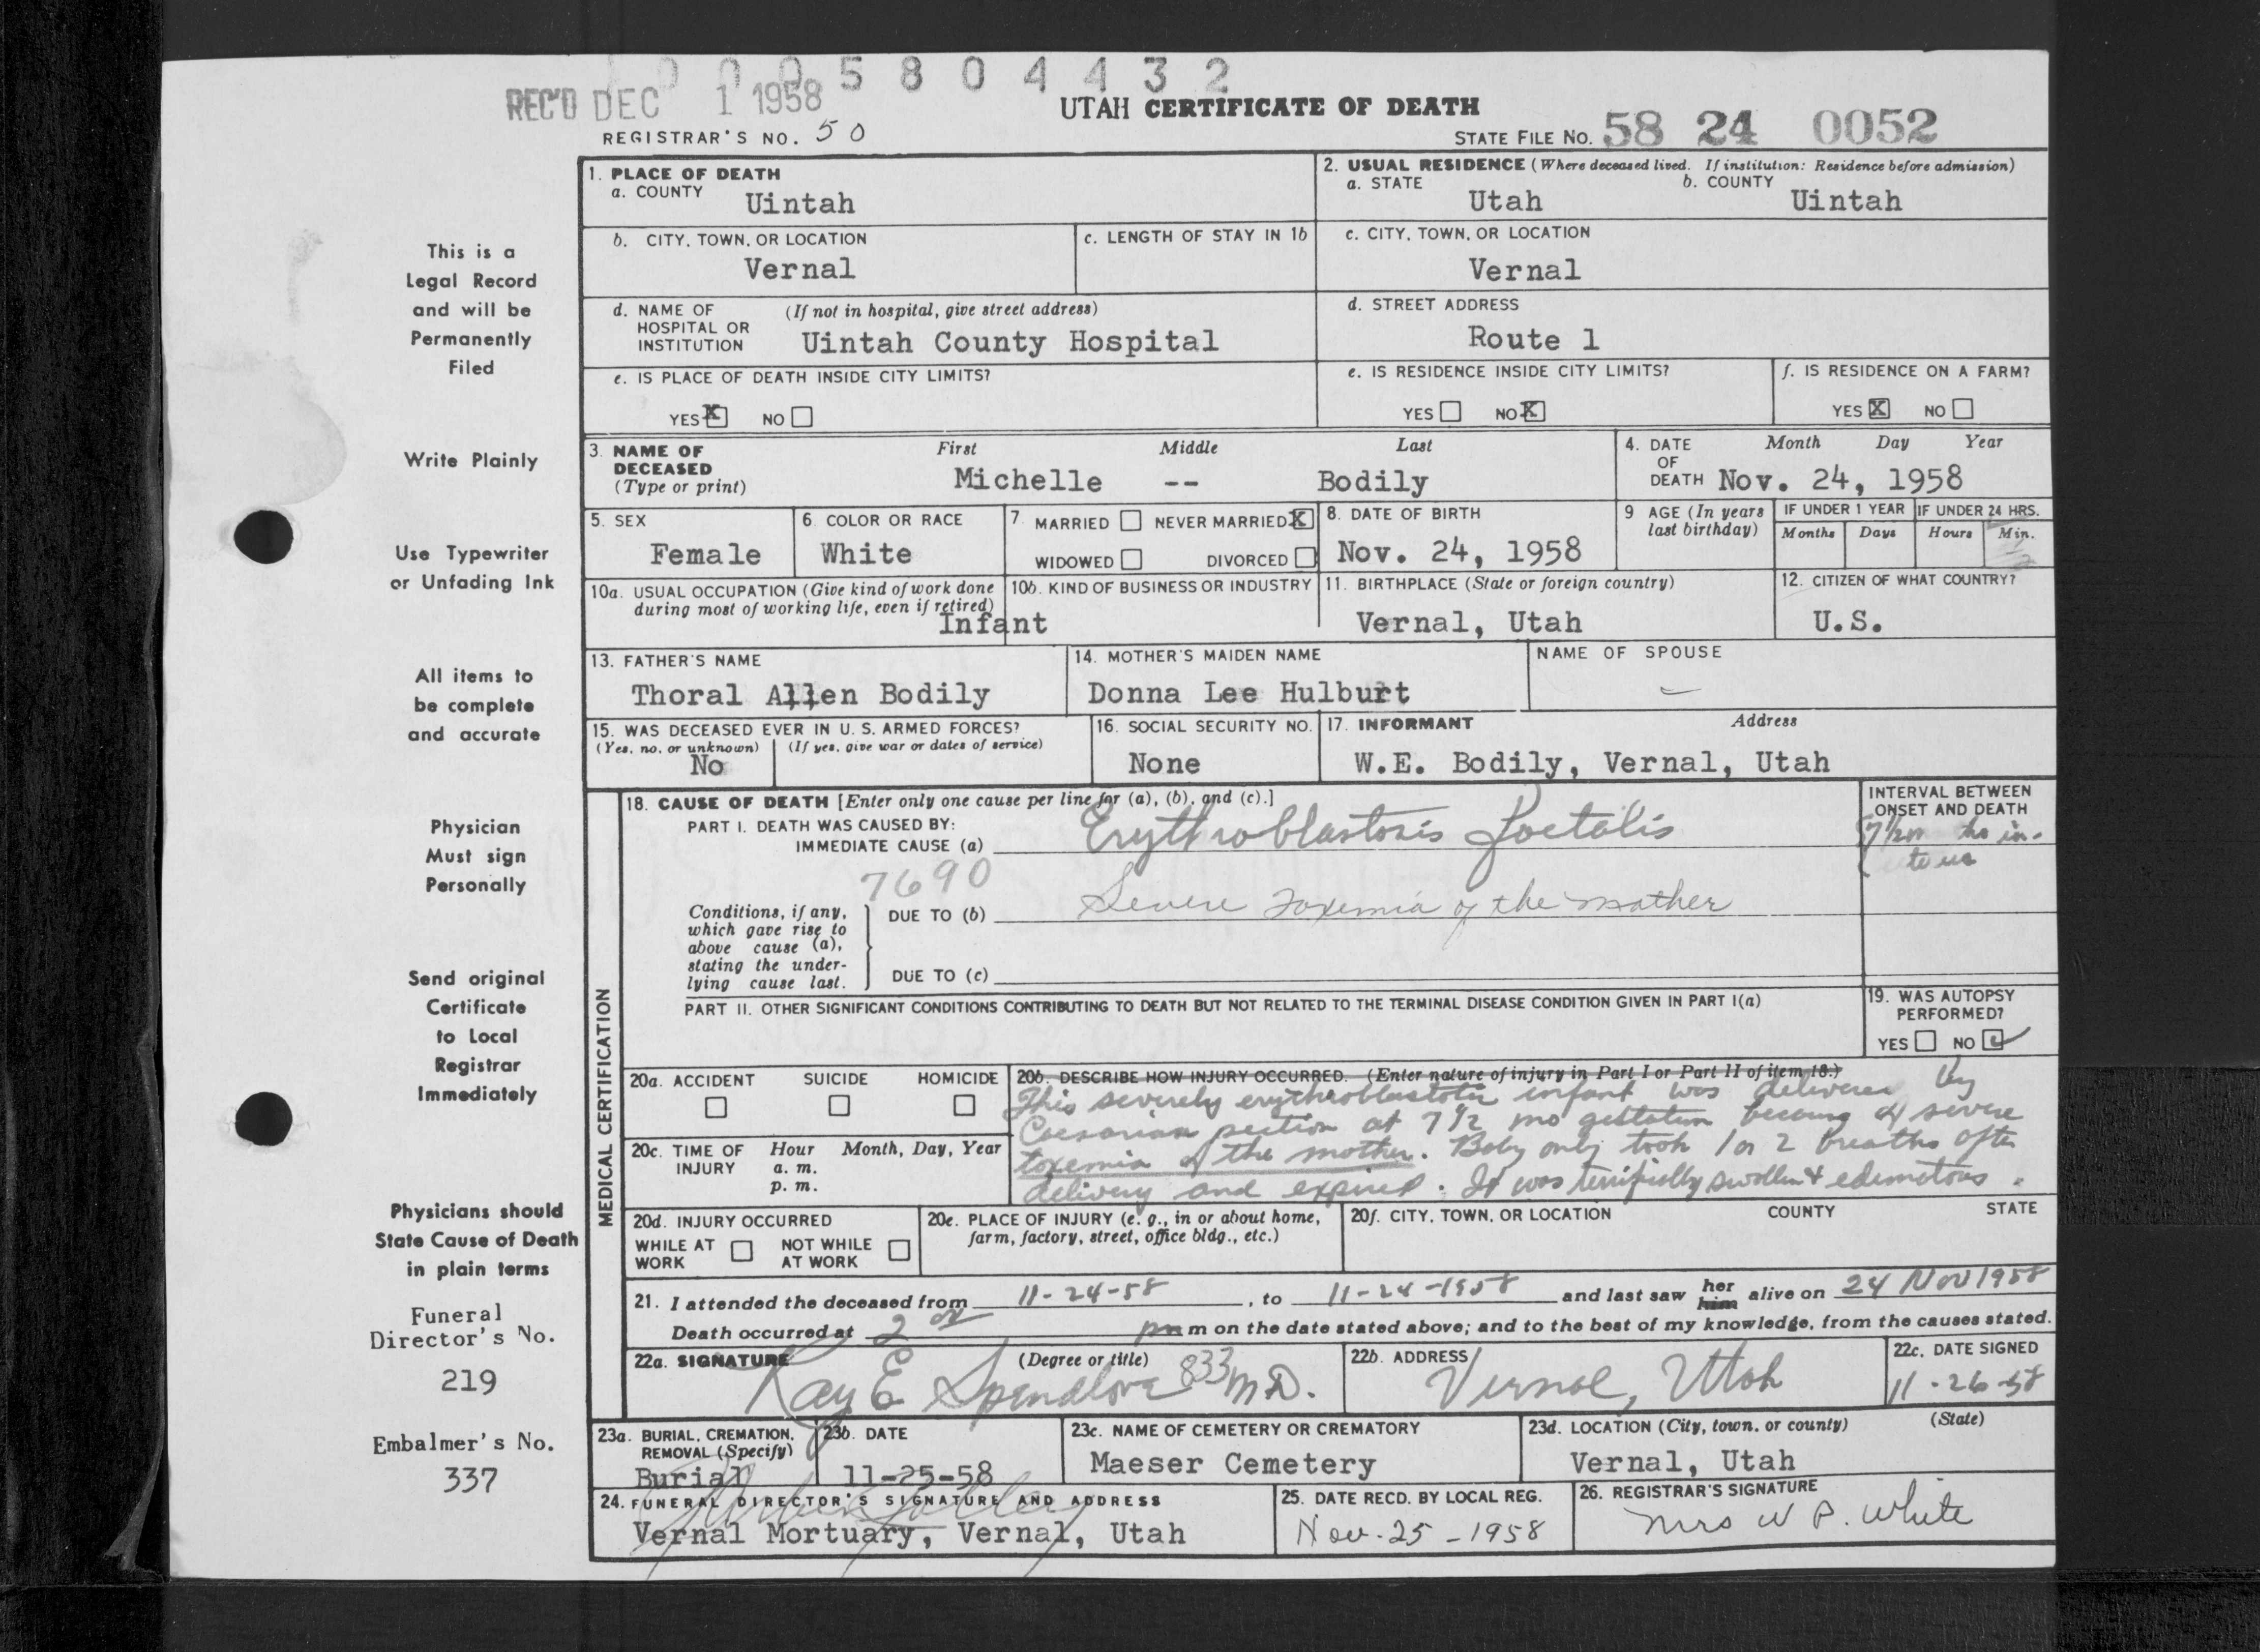 0 0 0 5 8 0 4 4 3 2
REC'D DEC 1 1958
UTAH CERTIFICATE OF DEATH
REGISTRAR'S NO. 50
STATE FILE NO. 58 24 0052
This is a
Legal Record
and will be
Permanently
Filed
Write Plainly
Use Typewriter
or Unfading Ink
All items to
be complete
and accurate
Physician
Must sign
Personally
Send original
Certificate
to Local
Registrar
Immediately
Physicians should
State Cause of Death
in plain terms
Funeral
Director's No.
219
Embalmer's No.
337
1. PLACE OF DEATH
a. COUNTY
Uintah
2. USUAL RESIDENCE (Where deceased lived. If institution: Residence before admission)
a. STATE
b. COUNTY
Utah
Uintah
b. CITY, TOWN, OR LOCATION
Vernal
c. LENGTH OF STAY IN 1b
c. CITY, TOWN, OR LOCATION
Vernal
d. NAME OF HOSPITAL OR INSTITUTION
(If not in hospital, give street address)
Uintah County Hospital
d. STREET ADDRESS
Route 1
e. IS PLACE OF DEATH INSIDE CITY LIMITS?
YES X NO
e. IS RESIDENCE INSIDE CITY LIMITS?
YES NO X
f. IS RESIDENCE ON A FARM?
YES X NO
3. NAME OF DECEASED
(Type or print)
First Middle Last
Michelle -- Bodily
4. DATE OF DEATH
Month Day Year
Nov. 24, 1958
5. SEX
Female
6. COLOR OR RACE
White
7. MARRIED NEVER MARRIED X
WIDOWED DIVORCED
8. DATE OF BIRTH
Nov. 24, 1958
9 AGE (In years last birthday)
IF UNDER 1 YEAR
Months Days
IF UNDER 24 HRS.
Hours Min.
10a. USUAL OCCUPATION (Give kind of work done
during most of working life, even if retired)
Infant
10b. KIND OF BUSINESS OR INDUSTRY
11. BIRTHPLACE (State or foreign country)
Vernal, Utah
12. CITIZEN OF WHAT COUNTRY?
U.S.
13. FATHER'S NAME
Thoral Allen Bodily
14. MOTHER'S MAIDEN NAME
Donna Lee Hulburt
NAME OF SPOUSE
–
15. WAS DECEASED EVER IN U. S. ARMED FORCES?
(Yes, no, or unknown) (If yes, give war or dates of service)
No
16. SOCIAL SECURITY NO.
None
17. INFORMANT Address
W.E. Bodily, Vernal, Utah
MEDICAL CERTIFICATION
18. CAUSE OF DEATH [Enter only one cause per line for (a), (b), and (c).]
PART I. DEATH WAS CAUSED BY:
IMMEDIATE CAUSE (a) Erythroblastosis Foetalis
INTERVAL BETWEEN
ONSET AND DEATH
7690
Conditions, if any,
which gave rise to
above cause (a),
stating the under-
lying cause last.
DUE TO (b) Severe Toxemia of the mother
DUE TO (c)
PART II. OTHER SIGNIFICANT CONDITIONS CONTRIBUTING TO DEATH BUT NOT RELATED TO THE TERMINAL DISEASE CONDITION GIVEN IN PART I(a)
19. WAS AUTOPSY
PERFORMED?
YES NO ✓
20a. ACCIDENT SUICIDE HOMICIDE
20b. DESCRIBE HOW INJURY OCCURRED. (Enter nature of injury in Part I or Part II of item 18.)
This severely erythroblastotic infant was delivered by
Caesarian section at 7 1/2 mo gestation because of severe
toxemia of the mother. Baby only took 1 or 2 breaths after
delivery and expired. It was terrifically swollen & edematous.
20c. TIME OF INJURY
Hour Month, Day, Year
a. m.
p. m.
20d. INJURY OCCURRED
WHILE AT WORK NOT WHILE AT WORK
20e. PLACE OF INJURY (e. g., in or about home,
farm, factory, street, office bldg., etc.)
20f. CITY, TOWN, OR LOCATION COUNTY STATE
21. I attended the deceased from 11-24-58, to 11-24-1958 and last saw her him alive on 24 Nov 1958
Death occurred at 2 00 pm m on the date stated above; and to the best of my knowledge, from the causes stated.
22a. SIGNATURE (Degree or title)
Ray E Spendlove 833 M.D.
22b. ADDRESS
Vernal, Utah
22c. DATE SIGNED
11-26-58
23a. BURIAL, CREMATION,
REMOVAL (Specify)
Burial
23b. DATE
11-25-58
23c. NAME OF CEMETERY OR CREMATORY
Maeser Cemetery
23d. LOCATION (City, town, or county) (State)
Vernal, Utah
24. FUNERAL DIRECTOR'S SIGNATURE AND ADDRESS
Vernal Mortuary, Vernal, Utah
25. DATE RECD. BY LOCAL REG.
Nov-25-1958
26. REGISTRAR'S SIGNATURE
Mrs W P. White